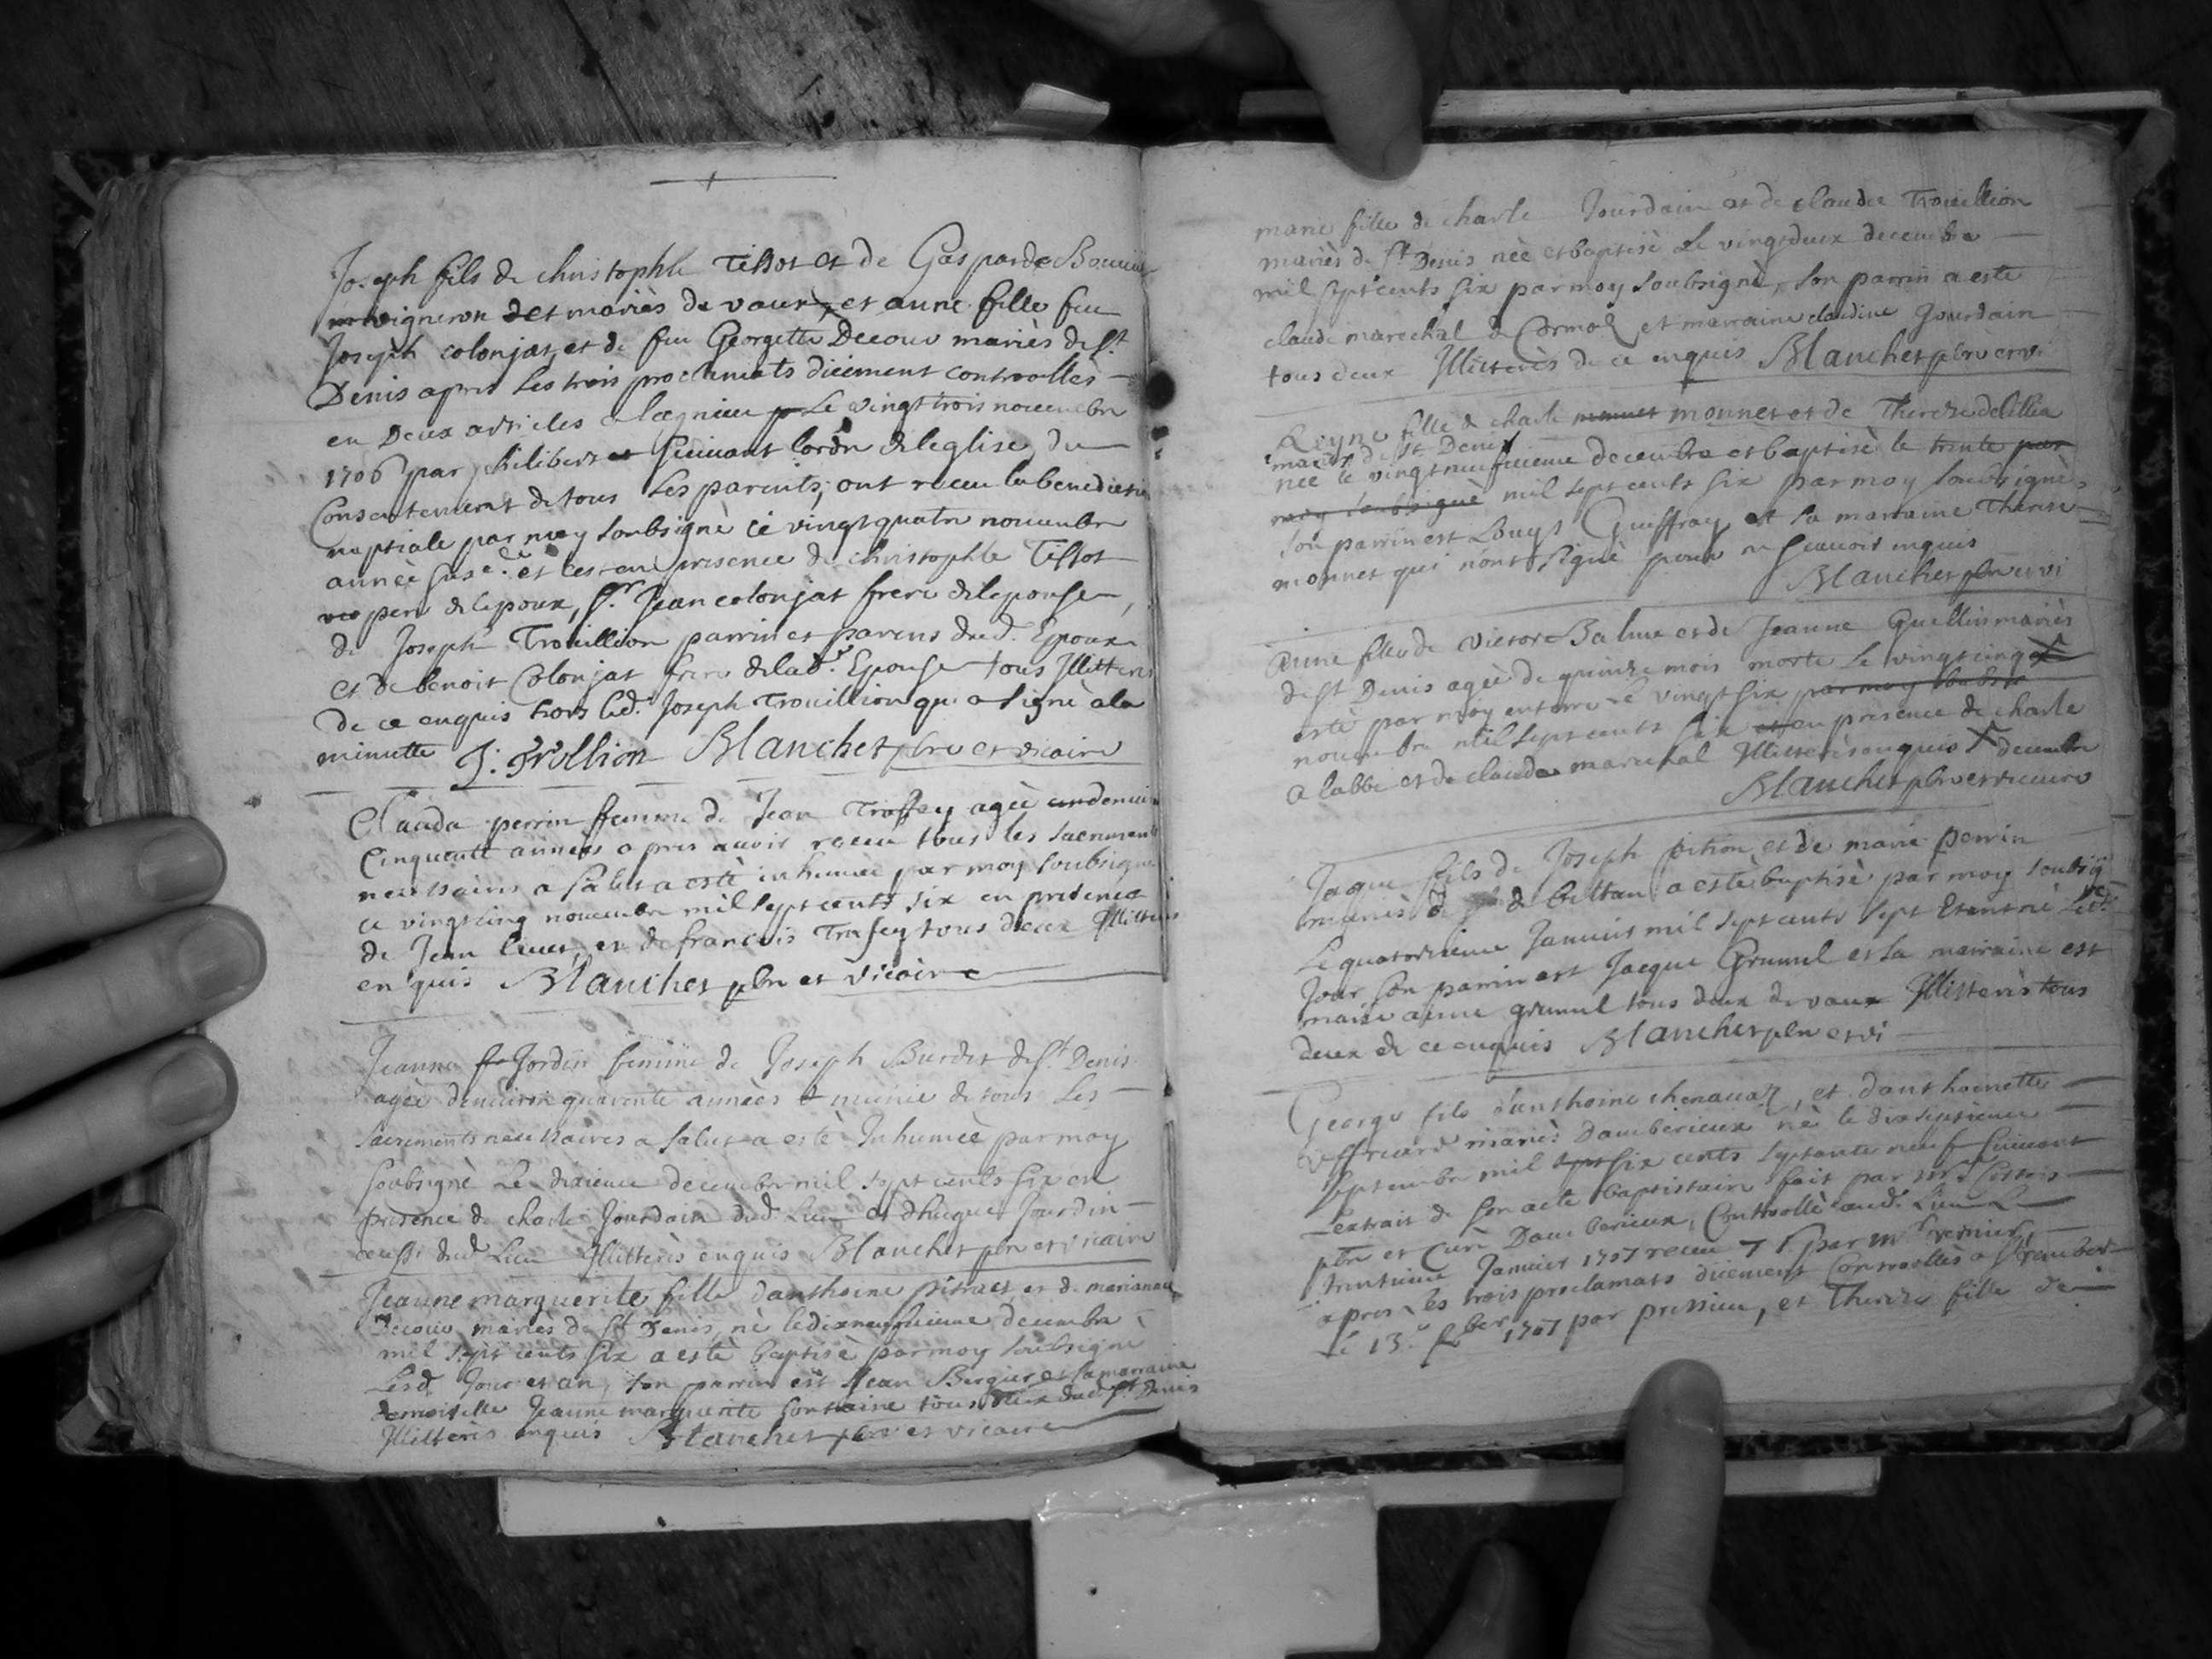 Joseph fils de christophle Tissot et de Gasparde
vigneron et mariès de vaux, et anne fille feu
Joseph colonjat, et de feu Georgette Decour mariès de St
Denis apres Les trois proclamats düement controollès
en Deux articles a lagnieu Le vingt trois novembre
1706 par philibert Suivant lordre de leglise du
Consentement de tous Les parents, ont receu la benediction
nuptiale par moy soubsignè ce vingt quatre novembre
annèe susd. et ce en presence de christophle Tissot
pere de lepoux, Sr Jean colonjat frere de lepouse,
de Joseph Trouillion parrin et parens dud. Epoux
et de benoit Colonjat frere de lad. Epouse tous Illitteres
de ce enquis hors led. Joseph Trouillion qui a signè a la
minutte J. Trollion Blanchet pbre et vicaire
Clauda perrin femme de Jean Traffey agèe denviron
Cinquente annèes apres avoir receu tous les sacrements
necessaires a salut a estè inhumèe par moy soubsigné
ce vingt cinq novembre mil sept cents six en presence
de Jean et de francois Trafey tous deux Illitteres
enquis Blanchet pbre et vicaire
Jeanne Jordin femme de Joseph Burdet de St Denis
agèe denviron quarente annèes munie de tous Les
sacrements necessaires a salut a estè Inhumèe par moy
soubsignè Le dixieme decembre mil sept cents six en
presence de charle Jourdain dud. Lieu et dhugue Jourdin
aussi dud Lieu Illitterès enquis Blanchet pbre et vicaire
Jeanne marguerite fille danthoine et de
Decour mariès de St Denis, nè le dixneufvieme decembre
mil sept cents six a estè baptisè par moy soubsignè
Lesd. Jour et an, son parrin est Jean Bergier et sa marraine
demoiselle Jeanne marguerite fontaine tous deux dud St Denis
Illitterès enquis Blanchet pbre et vicaire
marie fille de charle Jourdain et de claudee Trouillion
mariès de St Denis nèe et baptisè Le vingt deux decembre
mil sept cents six par moy soubsignè, son parrin a este
claude marechal de Cormoz et marraine claudine Jourdain
tous deux Illitterès de ce enquis Blanchet pbre et vi
Reyne fille de charle monnet et de Thereze
mariès de St Denis
nèe le vingt neufvieme decembre et baptisè le trente par
moy soubsignè mil sept cents six par moy soubsignè,
son parrin est Louys Guiffray et sa marraine Therese
monnet qui n'ont signè pour ne scavoir enquis
Blanchet pbre et vi
anne fille de Victor Balme et de Jeanne Guellin mariès
de St Denis agèe de quinze mois morte Le vingt cinq
estè par moy enterre Le vingt six par moy soubsi
novembre mil sept cents six et en presence de charle
a labbe et de claude marechal Illitterès enquis decembre
Blanchet pbre et vicaire
Jaque fils de Joseph et de marie perrin
mariès de a este baptisè par moy soubsig
Le quatorzieme Janvier mil sept cents sept Et est nè Led.
Jour son parrin est Jacque Grumel et sa marraine est
anne grumel tous deux de vaux Illitterès tous
deux de ce enquis Blanchet pbre et vi
George fils danthoine chenavaz, et danthoinette
mariès Damberieux nè le dixseptieme
septembre mil six cents septante neuf suivant
lextrait de son acte baptistaire fait par mr
pbre et Curè Damberieux, Controollè aud. Lieu Le
trentieme Janvier 1707 receu 7 s par mr vernier,
apres les trois proclamats düement Controollès a St rambert
le 13e fber 1707 par pressieu, et Thereze fille de